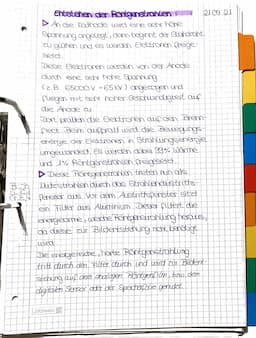 Entstehen der Röntgenstrahlen: 21.09.21
▷ An die Kathode wird eine sehr hohe
Spannung angelegt, dann beginnt der Glühdraht
zu glühen und es werden Elektronen freige-
setzt.
Diese Elektronen werden von der Anode
durch eine sehr hohe Spannung
(z.B. 65000 V = 65 kV) angezogen und
fliegen mit sehr hoher Geschwindigkeit auf
die Anode zu.
Dort prallen die Elektronen auf den Brenn-
fleck. Beim Aufprall wird die Bewegungs-
energie der Elektronen in Strahlungsenergie
umgewandelt. Es werden dabei 99% Wärme
und 1% Röntgenstrahlen freigesetzt.
▷ Diese Röntgenstrahlen treten nun als
Nutzstrahlen durch das Strahlenaustritts-
fenster aus. Vor dem Austrittsfenster sitzt
ein Filter aus Aluminium. Dieser filtert die
energiearme, weiche Röntgenstrahlung heraus,
da diese zur Bildentstehung nicht benötigt
wird.
Die energiereiche, harte Röntgenstrahlung
tritt durch den Filter durch und wird zur Bildent-
stehung auf den analogen Röntgenfilm, bzw. den
digitalen Sensor oder der Speicherfolie genutzt.